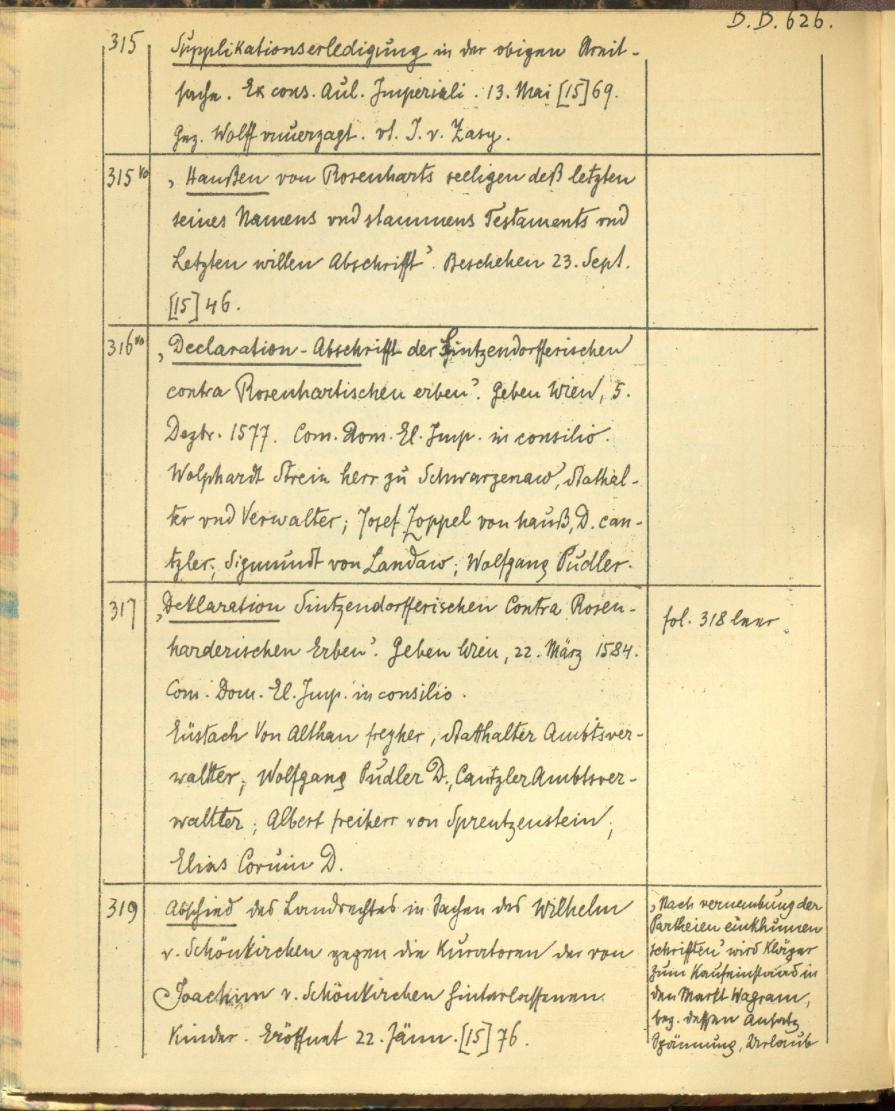 B.B. 626.
315 Supplikationserledigung in der obigen Streit-
sache. Ex cons. Aul. Imperiali. 13. Mai [15]69.
Gez. Wolff vnuerzagt. vt. J. v. Zasy.
315vo „Hanßen von Rosenharts seeligen deß letzten
seines Namens vnd stammens Testaments vnd
Letzten willen Abschrifft“. Beschehen 23. Sept.
[15]46.
316vo „Declaration-Abschrifft der Sintzendorfferischen
contra Rosenhartischen erben“. Geben Wien, 5.
Dezbr. 1577. Com. Dom. El. Imp. in consilio.
Wolphardt Strein herr zu Schwarzenaw, Stathal-
ter vnd Verwalter; Josef Zoppel von hauß, D. can-
tzler; Sigmundt von Landaw; Wolfgang Püdler.
317 „Deklaration Sintzendorfferischen Contra Rosen-
harderischen Erben“. Geben Wien, 22. März 1584.
Com. Dom. El. Imp. in consilio.
Eüstach Von Althan freyher, Statthalter Ambtsver-
waltter; Wolfgang Püdler D., Cantzler Ambtsver-
waltter; Albert freiherr von Sprentzenstein;
Elias Coruin D.
fol. 318 leer.
319 Abschied des Landrechtes in Sachen des Wilhelm
v. Schönkirchen gegen die Kuratoren der von
Joachim v. Schönkirchen hinterlassenen
Kinder. Eröffnet 22. Jänn. [15]76.
„Nach vernembung der
Partheien einkhumen
schrifften“ wird Kläger
zum Kaufeinstand in
den Markt Wagram,
bez. dessen Ansatz
Spännung, Urlaub